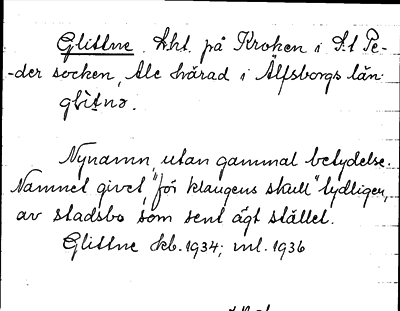 Glittne. Aht. på Kroken i S:t Pe-
-der socken, Ale härad i Älfsborgs län.
glìtnə.
Nynamn, utan gammal betydelse.
Namnet givet "för klangens skull" tydligen,
av stadsbo, som sent ägt stället.
Glittne kb. 1934; ml. 1936